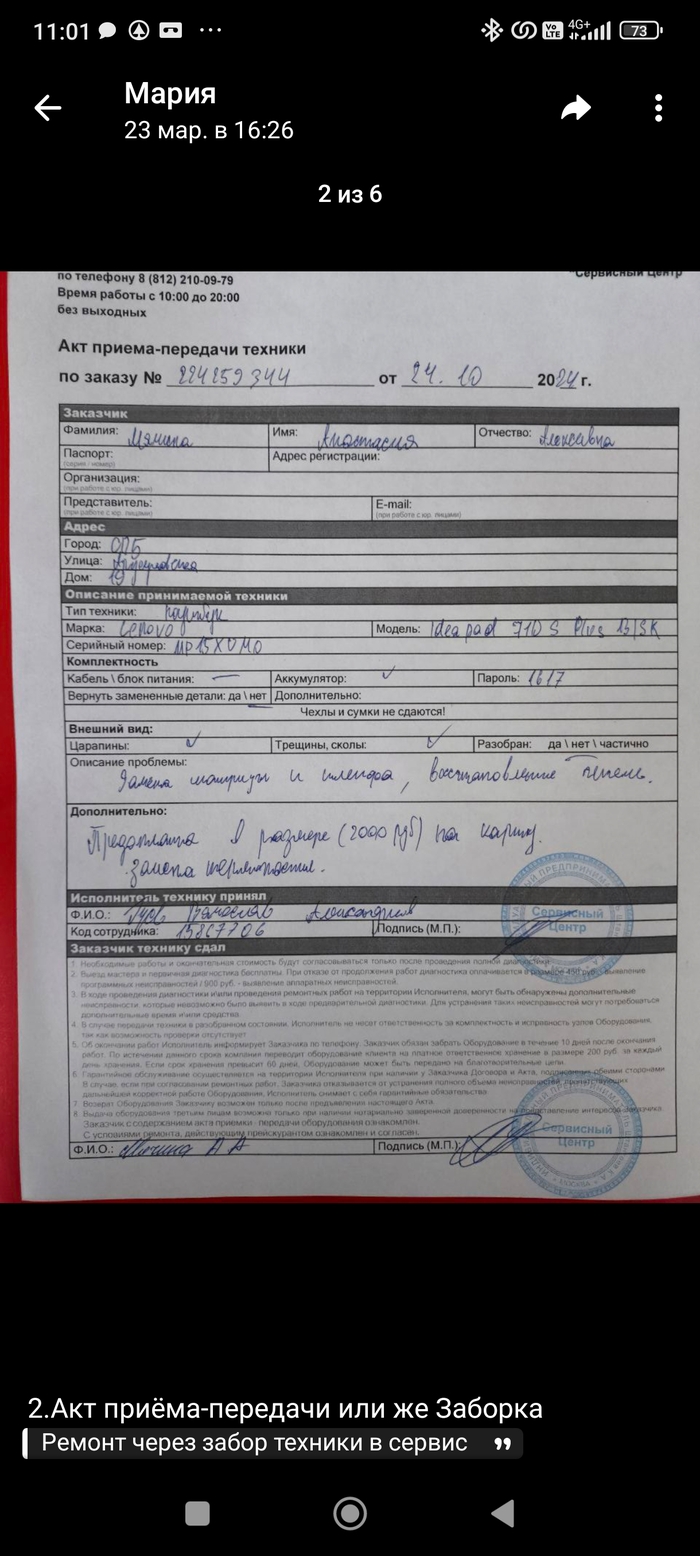 11:01 ... Vo LTE 4G+ 73
Мария
23 мар. в 16:26
2 из 6
по телефону 8 (812) 210-09-79
"Сервисный Центр
Время работы с 10:00 до 20:00
без выходных
Акт приема-передачи техники
по заказу № 224259344 от 24. 10 2024 г.
Заказчик
Фамилия: Имя: Анастасия Отчество:
Паспорт: Адрес регистрации:
(серия / номер)
Организация:
(при работе с юр. лицами)
Представитель: E-mail:
(при работе с юр. лицами) (при работе с юр. лицами)
Адрес
Город: СПБ
Улица:
Дом: 19
Описание принимаемой техники
Тип техники: ноутбук
Марка: Lenovo Модель: Ideapad 710 S Plus 13ISK
Серийный номер: MP15XUM0
Комплектность
Кабель \ блок питания: — Аккумулятор: ✓ Пароль: 1617
Вернуть замененные детали: да \ нет Дополнительно:
Чехлы и сумки не сдаются!
Внешний вид:
Царапины: ✓ Трещины, сколы: ✓ Разобран: да \ нет \ частично
Описание проблемы:
Замена матрицы и шлейфа, восстановление петель.
Дополнительно:
Предоплата в размере (2000 руб) на карту.
замена термопасты.
Исполнитель технику принял
Ф.И.О.: Александрович
Код сотрудника: 15867706 Подпись (М.П.):
Сервисный Центр
Заказчик технику сдал
1. Необходимые работы и окончательная стоимость будут согласовываться только после проведения полной диагностики.
2. Выезд мастера и первичная диагностика бесплатны. При отказе от продолжения работ диагностика оплачивается в размере 450 руб. - выявление
программных неисправностей / 900 руб. - выявление аппаратных неисправностей.
3. В ходе проведения диагностики и\или проведения ремонтных работ на территории Исполнителя, могут быть обнаружены дополнительные
неисправности, которые невозможно было выявить в ходе предварительной диагностики. Для устранения таких неисправностей могут потребоваться
дополнительные время и\или средства.
4. В случае передачи техники в разобранном состоянии, Исполнитель не несет ответственность за комплектность и исправность узлов Оборудования,
так как возможность проверки отсутствует.
5. Об окончании работ Исполнитель информирует Заказчика по телефону. Заказчик обязан забрать Оборудование в течение 10 дней после окончания
работ. По истечении данного срока компания переводит оборудование клиента на платное ответственное хранение в размере 200 руб. за каждый
день хранения. Если срок хранения превысит 60 дней, Оборудование может быть передано на благотворительные цели.
6. Гарантийное обслуживание осуществляется на территории Исполнителя при наличии у Заказчика Договора и Акта, подписанных обеими сторонами
В случае, если при согласовании ремонтных работ, Заказчик отказывается от устранения полного объема неисправностей, препятствующих
дальнейшей корректной работе Оборудования, Исполнитель снимает с себя гарантийные обязательства
7. Возврат Оборудования Заказчику возможен только после предъявления настоящего Акта.
8. Выдача оборудования третьим лицам возможно только при наличии нотариально заверенной доверенности на представление интересов Заказчика.
Заказчик с содержанием акта приемки - передачи оборудования ознакомлен.
С условиями ремонта, действующим прейскурантом ознакомлен и согласен.
Ф.И.О.: А А Подпись (М.П.):
Сервисный Центр
МОСКВА
2.Акт приёма-передачи или же Заборка
Ремонт через забор техники в сервис